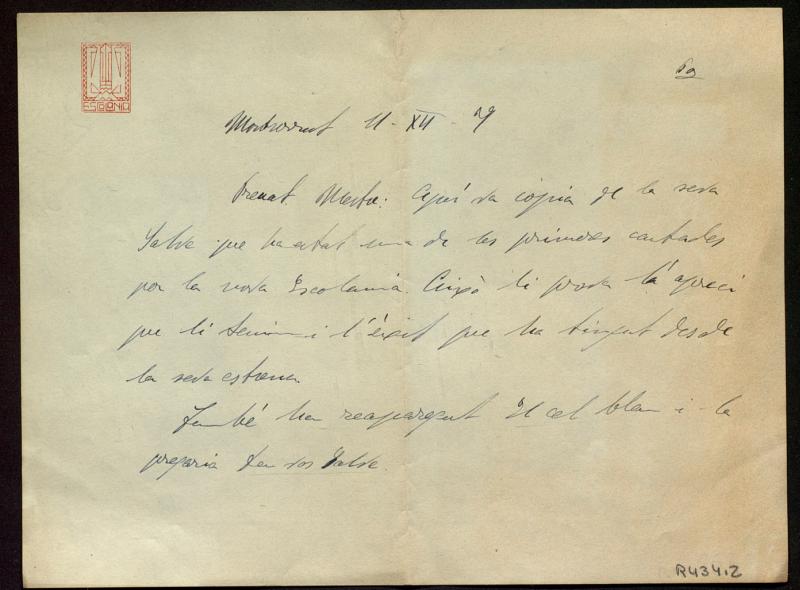 ESCOLANIA
Montserrat 11-XII-
Preuat Mestre: Aquí va còpia de la seva
Salve que ha estat una de les primeres cantades
per la nova Escolania. Això li prova l'apreci
que li tenim i l'èxit que ha tingut desde
la seva estrena
També ha reaparegut El cel blau i la
pregaria Salve.
R434.2